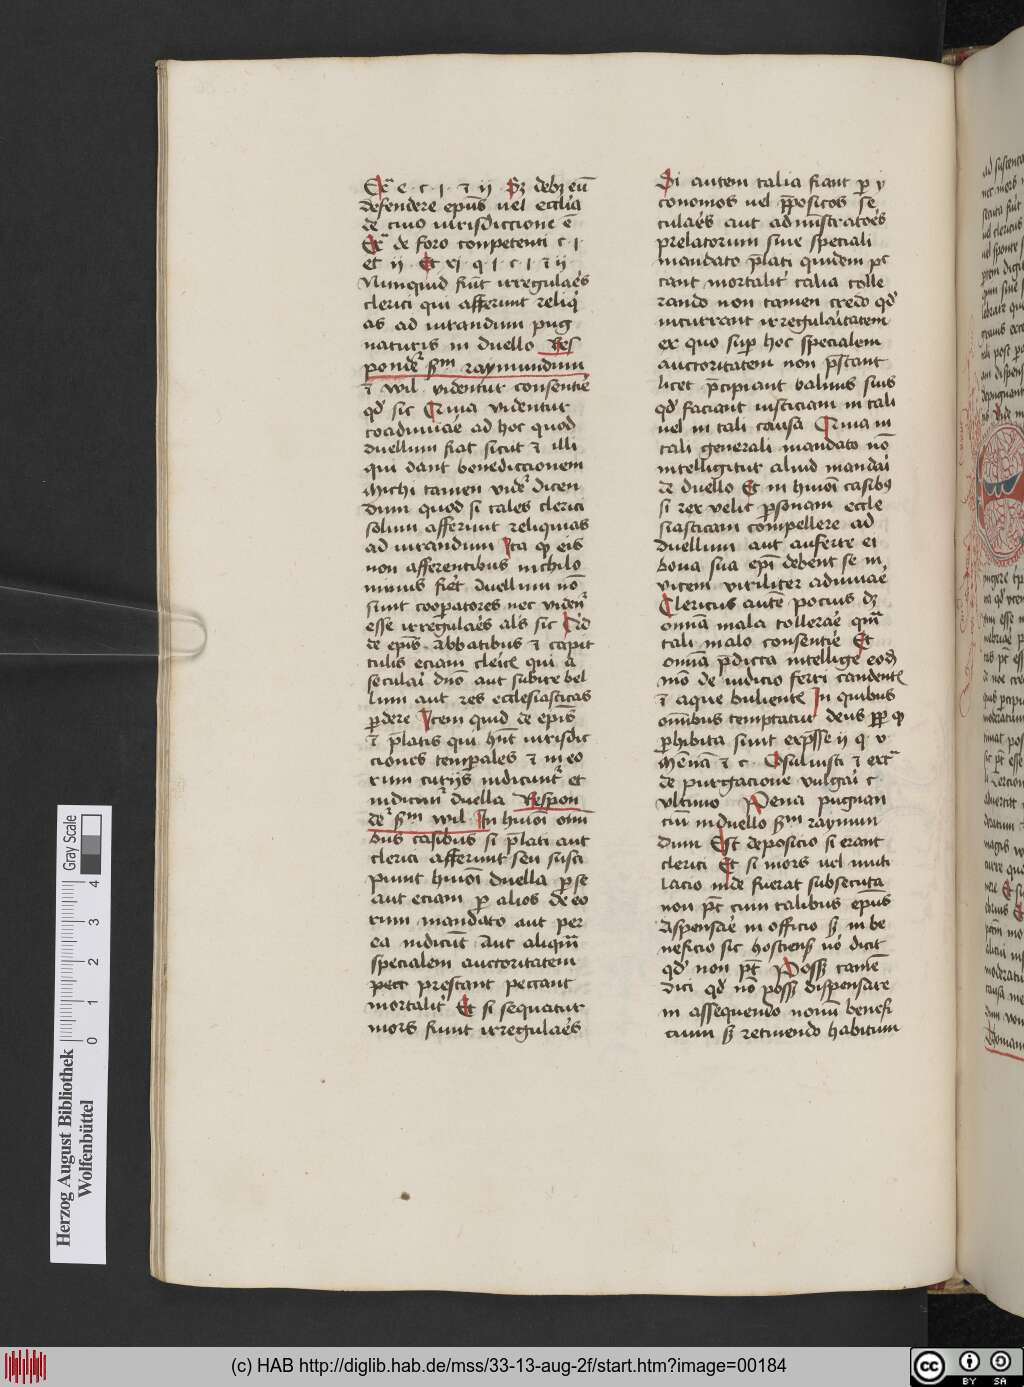 Exͣ e · c · i · ⁊ ij · Sꝫ debꝫ eū
defendere ep̄us uel ecclīa
de cuiꝰ iurisdiccione ē
Exͣ de foro conpetenti c · i ·
et ij · Et xj · q · i · c · i · ⁊ ij ·
Nunquid sūt irregulaēs
clerici qui afferunt reliqͥ
as ad iurandum pug
naturis in duello Res
pondeͬ sᵐ raymundum
⁊ wil · videntur consentiē
qd̕ sic Cͥma videntur
coadiuuāe ad hoc quod
duellum fiat sicut ⁊ illi
qui dant benediccionem
Michi tamen videͬ dicen
dum quod si tales clerici
solum afferunt reliquias
ad iurandum Ita ꝙ eis
non afferentibus nichilo
minus fiet duellum nō
sunt coopatores nec viden̄
esse irregulaēs al's sic Qͥd
de epūs · abbatibus ⁊ capit
tulis eciam clericꝭ qui a
seculai dn̄o aut subire bel
lum aut res ecclesiasticas
ꝑdere Item quid de epūs
⁊ p̄latis qui hn̄t iurisdic
ciones temꝑales ⁊ in eo
rum curijs indicuntͬ et
iudicānͬ duella Respon
deͬ sᵐ wil · In huiōi om̄i
bus casibus si p̄lati aut
clerici afferunt seu susci
piunt huiōi duella ꝑ se
aut eciam ꝑ alios de eo
rum mandato aut per
ea indicūt aut aliqūi
specialem auctoritatem
pecc prestant peccant
mortalit̕ Et si sequatur
mors fiunt irregulaēs
Si autem talia fiant ꝑ y
conomos uel p̄positos se
culaēs aut adminīstratoēs
prelatorum siue speciali
mandato p̄lati quidem pec
cant mortalit̕ talia tolle
rando non tamen credo qd̕
incurrant irregulaitatem
ex quo suꝑ hoc specialem
auctoritatem non p̄stant
licet p̄cipiant baliuis suis
qd̕ faciant iusticiam in tali
uel in tali causa Qͥma in
tali generali mandato nō
intelligitur aliud mandai
de duello Et in huiōi casibꝰ
si rex velit ꝑsonam eccle
siasticam compellere ad
duellum aut auferre ei
bona sua epī debent se in
uicem viriliter adiuuāe
Clericus autē pocius dꝫ
omīa mala tollerāe qͣm
tali malo consentīe Et
omīa p̄dicta intellige eodͫ
mō de iudicio ferri candentꝭ
⁊ aque bulientꝭ In quibus
omībus temptatur deus ꝓp ꝙ
ꝓhibita sunt exp̄sse ij q · v
Mēnā ⁊ c · Cōsuluisti ⁊ extͣ
de purgacione vulgai c ·
vltimo Pena pugnan
ciū in duello sᵐ raymun
dum Est deposicio si erant
clerici Et si mors uel muti
lacio inde fuerat subsecuta
non pōt cum talibus epūs
dispensāe in officio sꝫ in be
neficio sic hostiensꝭ vō dicit
qd̕ non pōt Possꝫ tamē
dici qd̕ nō possꝫ dispensare
in assequendo nouū benefi
cium sꝫ retinendo habitum
Herzog August Bibliothek
Wolfenbüttel
Gray Scale
0 1 2 3 4
(c) HAB http://diglib.hab.de/mss/33-13-aug-2f/start.htm?image=00184
cc BY SA